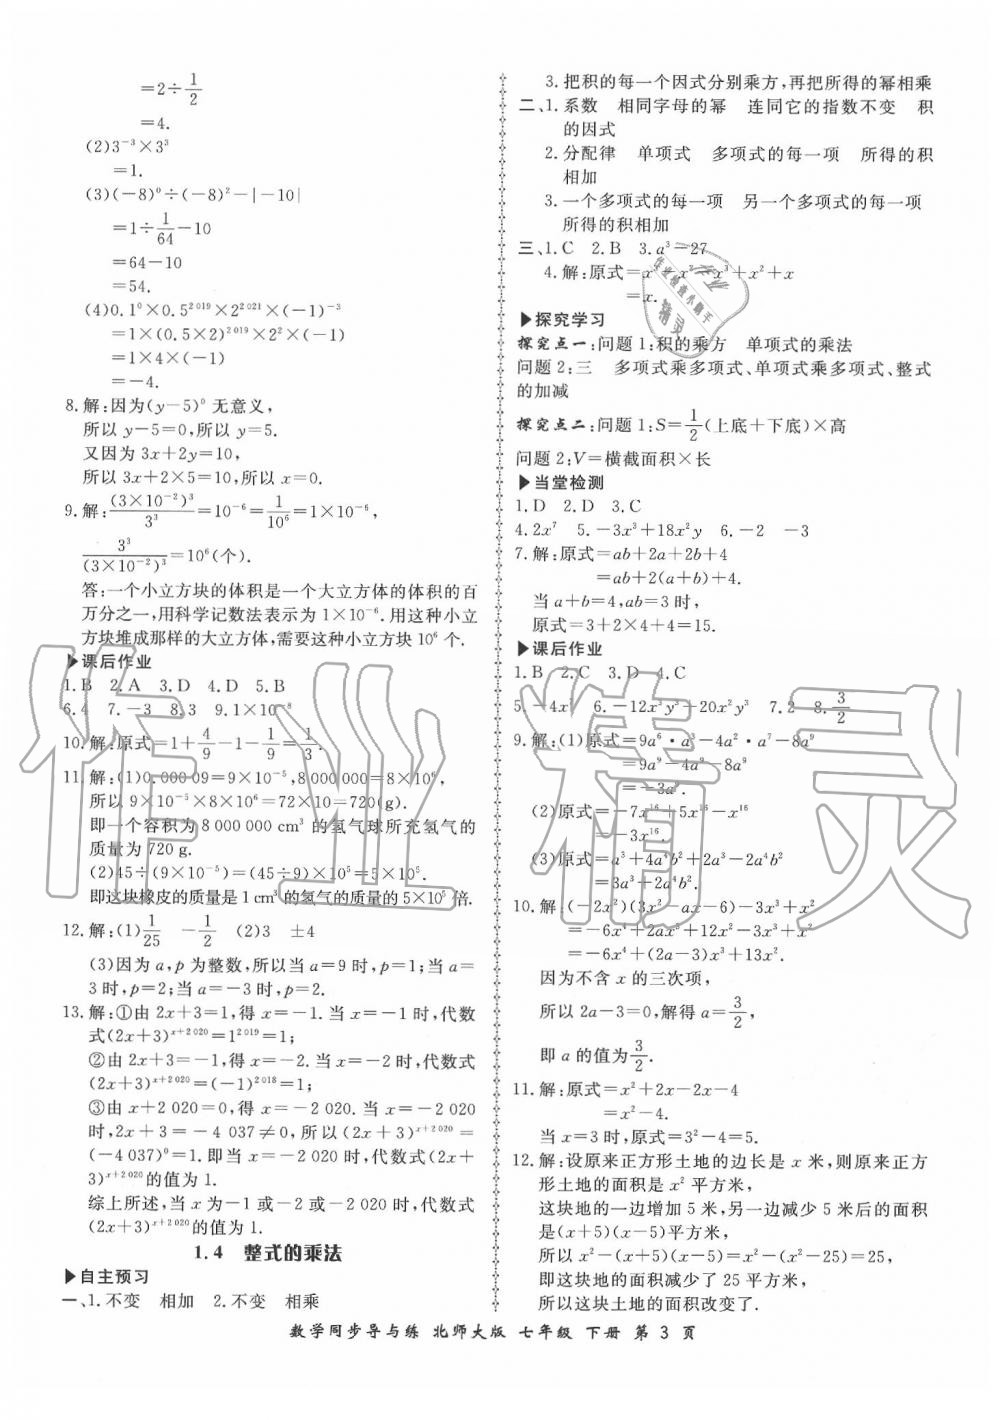 =2÷1/2
=4.
(2)3⁻³×3³
=1.
(3)(-8)⁰÷(-8)⁻²-|-10|
=1÷1/64-10
=64-10
=54.
(4)0.1⁰×0.5²⁰¹⁹×2²⁰²¹×(-1)⁻³
=1×(0.5×2)²⁰¹⁹×2²×(-1)
=1×4×(-1)
=-4.
8.解:因为(y-5)⁰无意义,
所以 y-5=0,所以 y=5.
又因为 3x+2y=10,
所以 3x+2×5=10,所以 x=0.
9.解:(3×10⁻²)³/3³=10⁻⁶=1/10⁶=1×10⁻⁶,
3³/(3×10⁻²)³=10⁶(个).
答:一个小立方块的体积是一个大立方体的体积的百
万分之一,用科学记数法表示为 1×10⁻⁶.用这种小立
方块堆成那样的大立方体,需要这种小立方块 10⁶ 个.
▶课后作业
1.B 2.A 3.D 4.D 5.B
6.4 7.-3 8.3 9.1×10⁻⁸
10.解:原式=1+4/9-1-1/9=1/3.
11.解:(1)0.000 09=9×10⁻⁵,8 000 000=8×10⁶,
所以 9×10⁻⁵×8×10⁶=72×10=720(g).
即一个容积为 8 000 000 cm³ 的氢气球所充氢气的
质量为 720 g.
(2)45÷(9×10⁻⁵)=(45÷9)×10⁵=5×10⁵.
即这块橡皮的质量是 1 cm³ 的氢气的质量的 5×10⁵ 倍.
12.解:(1)1/25 -1/2 (2)3 ±4
(3)因为 a,p 为整数,所以当 a=9 时,p=1;当 a=
3 时,p=2;当 a=-3 时,p=2.
13.解:①由 2x+3=1,得 x=-1.当 x=-1 时,代数
式(2x+3)ˣ⁺²⁰²⁰=1²⁰¹⁹=1;
②由 2x+3=-1,得 x=-2.当 x=-2 时,代数式
(2x+3)ˣ⁺²⁰²⁰=(-1)²⁰¹⁸=1;
③由 x+2 020=0,得 x=-2 020.当 x=-2 020
时,2x+3=-4 037≠0,所以(2x+3)ˣ⁺²⁰²⁰=
(-4 037)⁰=1.当 x=-2 020 时,代数式(2x+
3)ˣ⁺²⁰²⁰的值为 1.
综上所述,当 x 为-1 或-2 或-2 020 时,代数式
(2x+3)ˣ⁺²⁰²⁰的值为 1.
1.4 整式的乘法
▶自主预习
一、1.不变 相加 2.不变 相乘
3.把积的每一个因式分别乘方,再把所得的幂相乘
二、1.系数 相同字母的幂 连同它的指数不变 积
的因式
2.分配律 单项式 多项式的每一项 所得的积
相加
3.一个多项式的每一项 另一个多项式的每一项
所得的积相加
三、1.C 2.B 3.a³-27
4.解:原式=x³-x²-x³+x²+x
=x.
▶探究学习
探究点一:问题 1:积的乘方 单项式的乘法
问题 2:三 多项式乘多项式、单项式乘多项式、整式
的加减
探究点二:问题 1:S=1/2(上底+下底)×高
问题 2:V=横截面积×长
▶当堂检测
1.D 2.D 3.C
4.2x⁷ 5.-3x³+18x²y 6.-2 -3
7.解:原式=ab+2a+2b+4
=ab+2(a+b)+4.
当 a+b=4,ab=3 时,
原式=3+2×4+4=15.
▶课后作业
1.B 2.C 3.D 4.C
5.-4x⁷ 6.-12x³y³+20x²y³ 7.2 8.3/2
9.解:(1)原式=9a⁶·a³-4a²·a⁷-8a⁹
=9a⁹-4a⁹-8a⁹
=-3a⁹.
(2)原式=-7x¹⁶+5x¹⁶-x¹⁶
=-3x¹⁶.
(3)原式=a³+4a⁴b²+2a³-2a⁴b²
=3a³+2a⁴b².
10.解:(-2x²)(3x²-ax-6)-3x³+x²
=-6x⁴+2ax³+12x²-3x³+x²
=-6x⁴+(2a-3)x³+13x².
因为不含 x 的三次项,
所以 2a-3=0,解得 a=3/2,
即 a 的值为3/2.
11.解:原式=x²+2x-2x-4
=x²-4.
当 x=3 时,原式=3²-4=5.
12.解:设原来正方形土地的边长是 x 米,则原来正方
形土地的面积是 x² 平方米,
这块地的一边增加 5 米,另一边减少 5 米后的面积
是(x+5)(x-5)平方米,
所以 x²-(x+5)(x-5)=x²-(x²-25)=25,
即这块地的面积减少了 25 平方米,
所以这块土地的面积改变了.
数学同步导与练 北师大版 七年级 下册 第 3 页
作业精灵